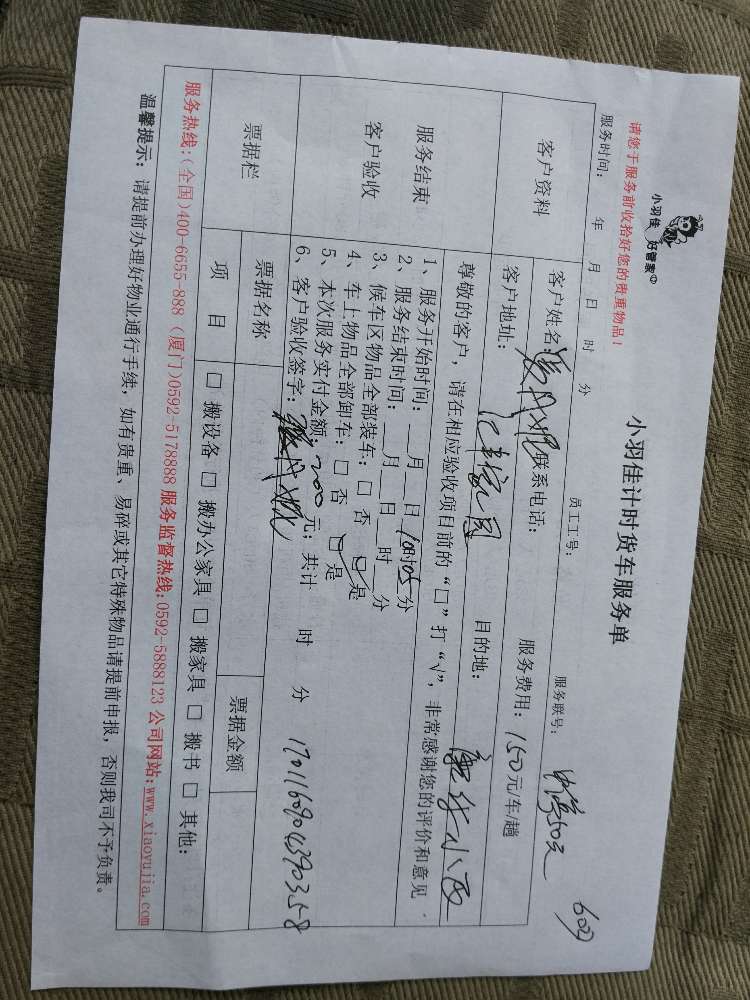 小羽佳 好管家
小羽佳计时货车服务单
请您于服务前收拾好您的贵重物品！
服务时间： 年 月 日 时 分 员工工号： 服务联号：
60
客户资料
客户姓名： 联系电话： 服务费用：150元/车/趟
客户地址： 目的地：
服务结束
客户验收
尊敬的客户，请在相应验收项目前的“□”打“√”，非常感谢您的评价和意见
1、服务开始时间：__月__日10时05分
2、服务结束时间：__月__日__时__分
3、候车区物品全部装车：□ 否 □ 是
4、车上物品全部卸车：□ 否 □ 是
5、本次服务实付金额：200元；共计 时 分 1701160904390358
6、客户验收签字：
票据栏
票据名称 票据金额
项 目 □ 搬设备 □ 搬办公家具 □ 搬家具 □ 搬书 □ 其他：
服务热线：(全国)400-6655-888 (厦门)0592-5178888 服务监督热线：0592-5888123 公司网站：www.xiaoyujia.com
温馨提示：请提前办理好物业通行手续，如有贵重、易碎或其它特殊物品请提前申报，否则我司不予负责。